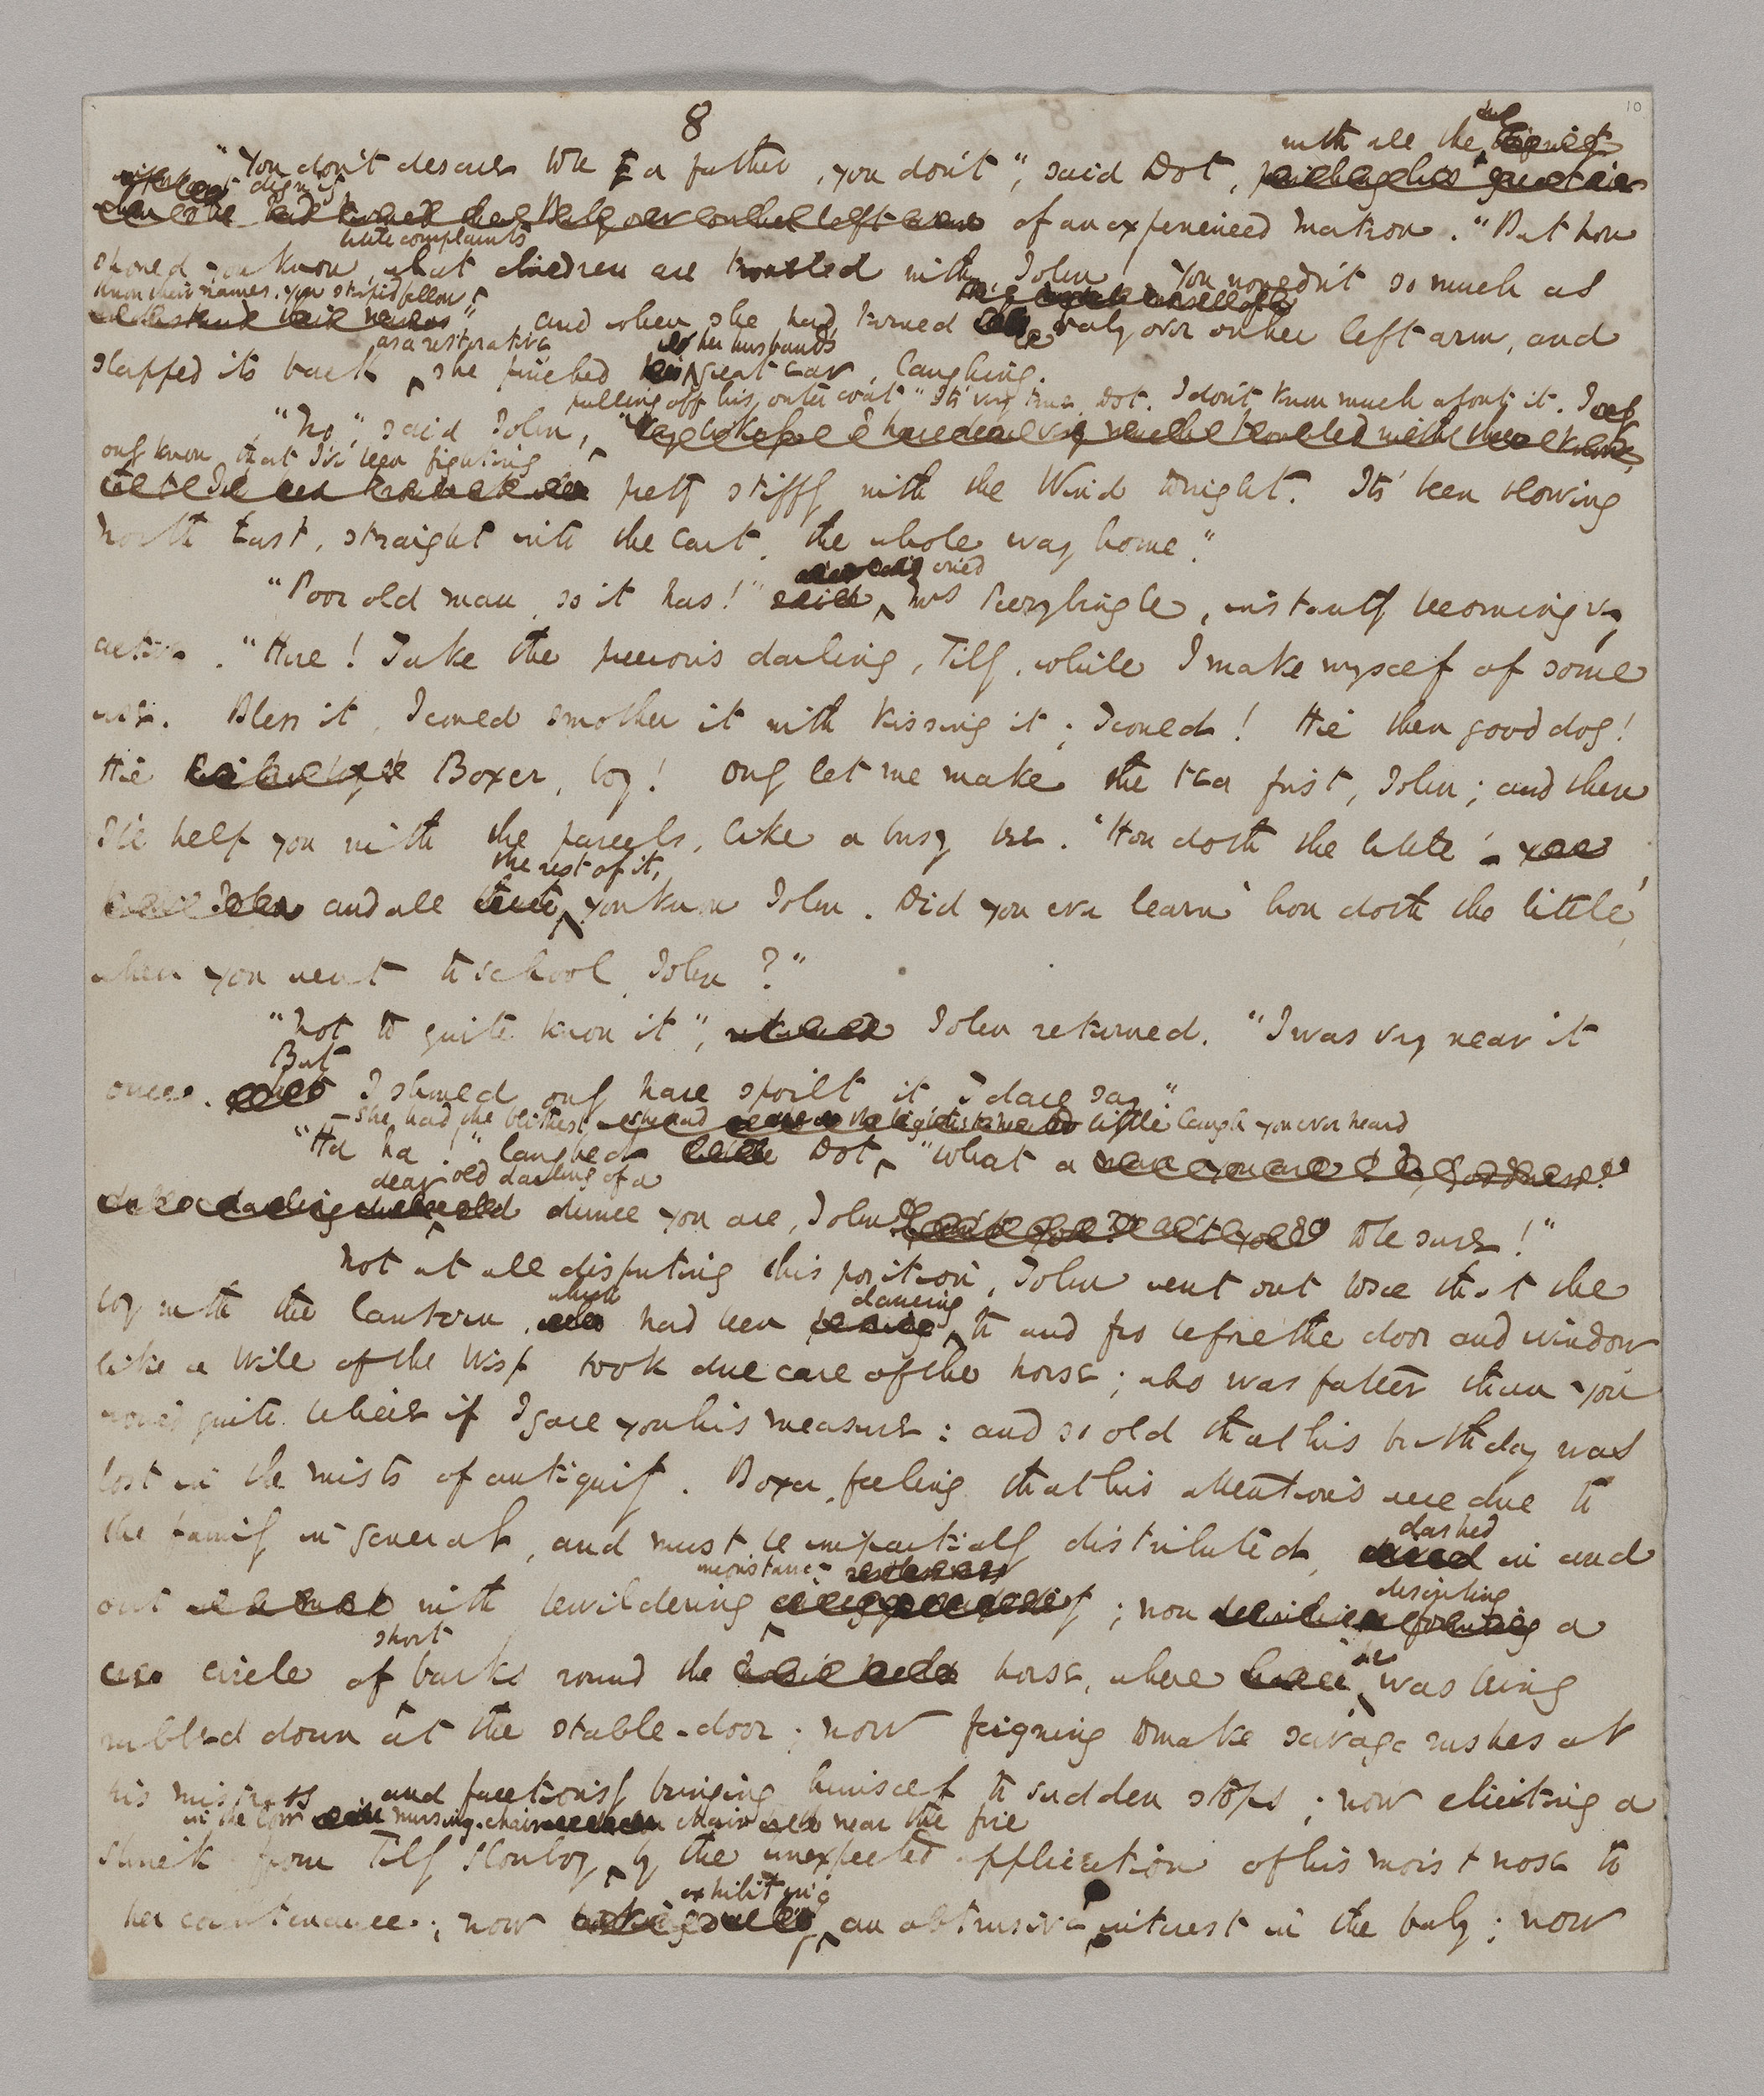 8
10
with all the
"You don't deserve to be a father, you don't", said Dot,
dignity
of an experienced matron. "But how
little complaints
should you know, what children are troubled with, John. You wouldn't so much as
know their names, you stupid fellow!"
and when she had turned the baby over on her left arm, and
as a restorative her husband's
slapped its back, she pinched great ear, laughing.
pulling off his outer coat "It's very true, Dot. I don't know much about it. I
"No", said John,
only know that I've been fighting
pretty stiffly with the Wind tonight. It's been blowing
North East, straight into the cart, the whole way home."
cried
"Poor old man, so it has!" said Mrs Peerybingle, instantly becoming very
active. "Here! Take the precious darling, Tilly, while I make myself of some
use. Bless it, I could smother it with kissing it; I could! Hie then good dog!
Hie Boxer, boy! Only let me make the tea first, John; and then
I'll help you with the parcels, like a busy bee. 'How doth the little'—
the rest of it,
and all you know John. Did you ever learn 'how doth the little',
when you went to school, John?"
"Not to quite know it", John returned. "I was very near it
But
once. I should only have spoilt it, I dare say."
— she had the blithest little laugh you ever heard
"Ha ha!" laughed Dot, "What a
dear old darling of a
dunce you are, John to be sure!"
Not at all disputing this position, John went out to see that the
which dancing
boy with the lantern, had been to and fro before the door and window
like a Will of the Wisp took due care of the horse; who was fatter than you
would quite believe if I gave you his measure: and so old that his birthday was
lost in the mists of antiquity. Boxer, feeling that his attentions were due to
dashed
the family in general, and must be impartially distributed, in and
inconstancy restlessness
out with bewildering ; now
describing
a
short
circle of barks round the horse, where he was being
rubbed down at the stable-door; now feigning to make savage rushes at
his mistress and facetiously bringing himself to sudden stops; now eliciting a
in the low nursing-chair near the fire
shriek from Tilly Slowboy, by the unexpected application of his moist nose to
exhibiting
her countenance; now an obtrusive interest in the baby; now